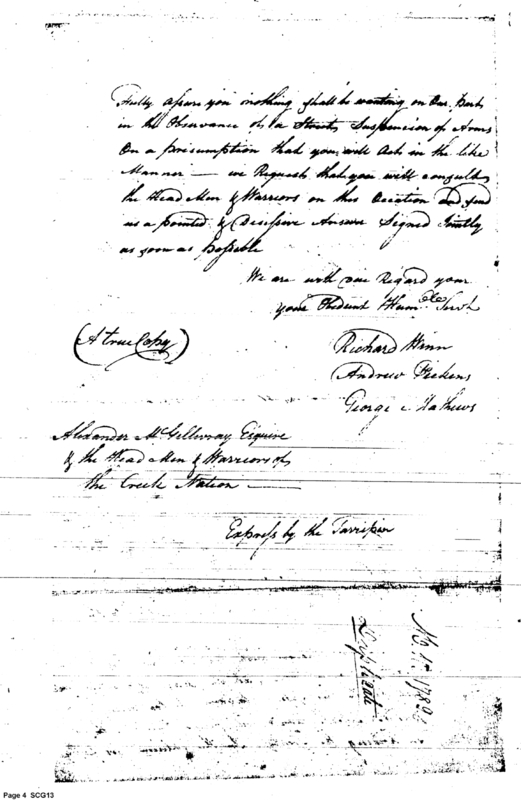 Fully assure you nothing shall be wanting on Our Part
in the Observance of a Strict Suspension of Arms
On a presumption that you will Act in the like
Manner — we Request that you will consult
the Head Men & Warriors on this Occation and send
us a pointed & Decisive Answer Signed Jointly
as soon as Possible
We are with due Regard your
your Obedient Humble Servts
(A true Copy)
Richard Winn
Andrew Pickens
George Mathews
Alexander McGillivray Esquire
& the Head Men & Warriors of
the Creek Nation —
Express by the Tarripin
No. 1. 1789
Duplicate
Page 4 SCG13